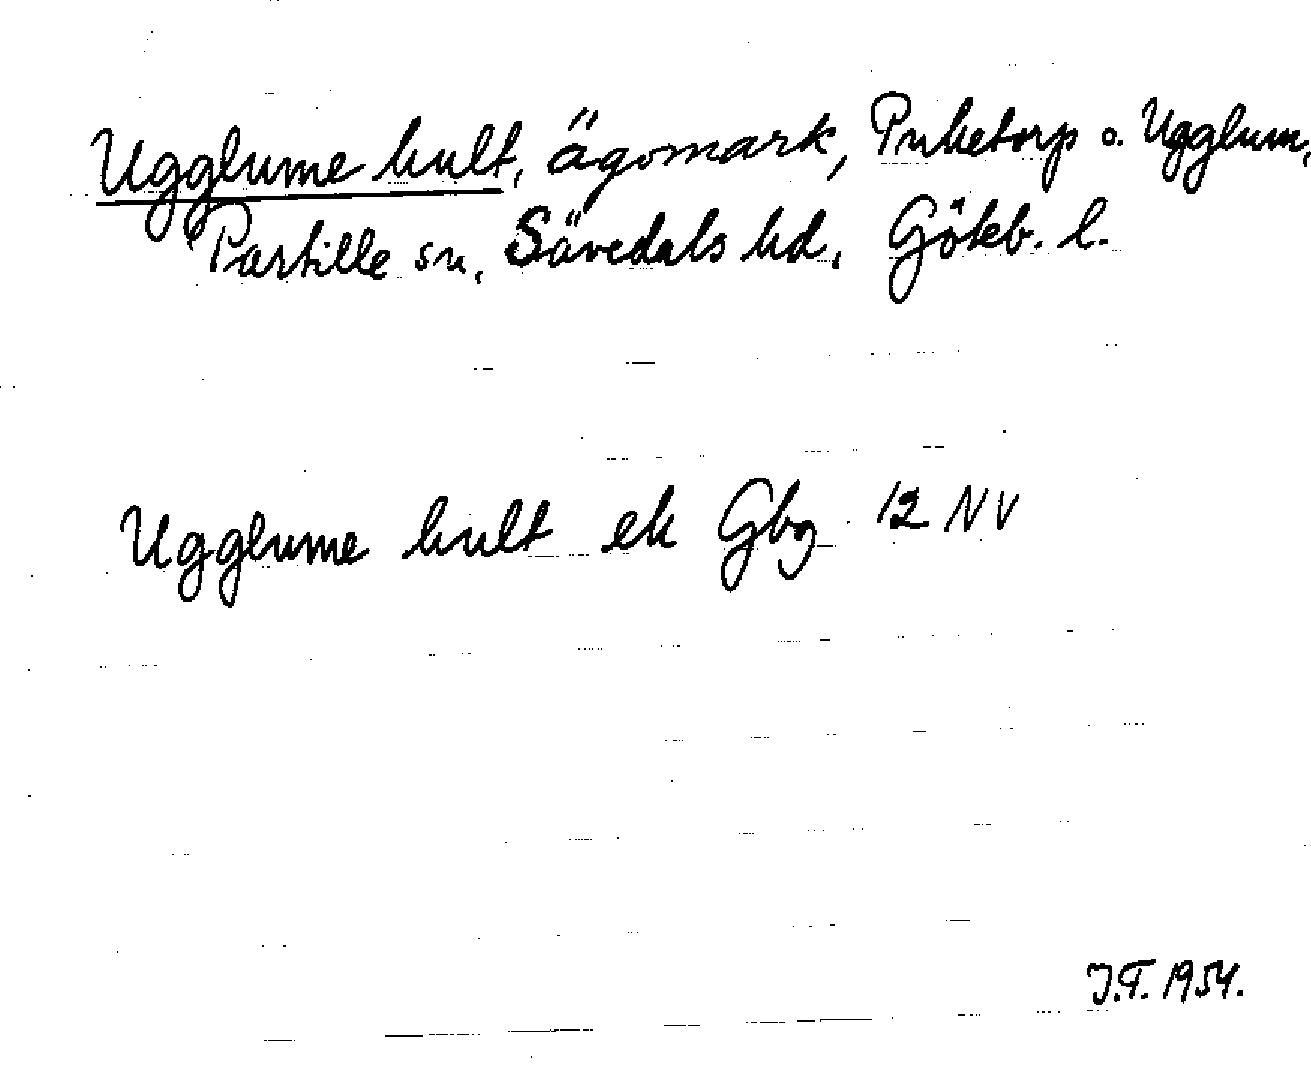 Ugglume hult, ägomark, Puketorp o. Ugglum,
Partille sn, Sävedals hd, Göteb. l.
Ugglume hult ek Gbg 12 NV
J.T. 1954.